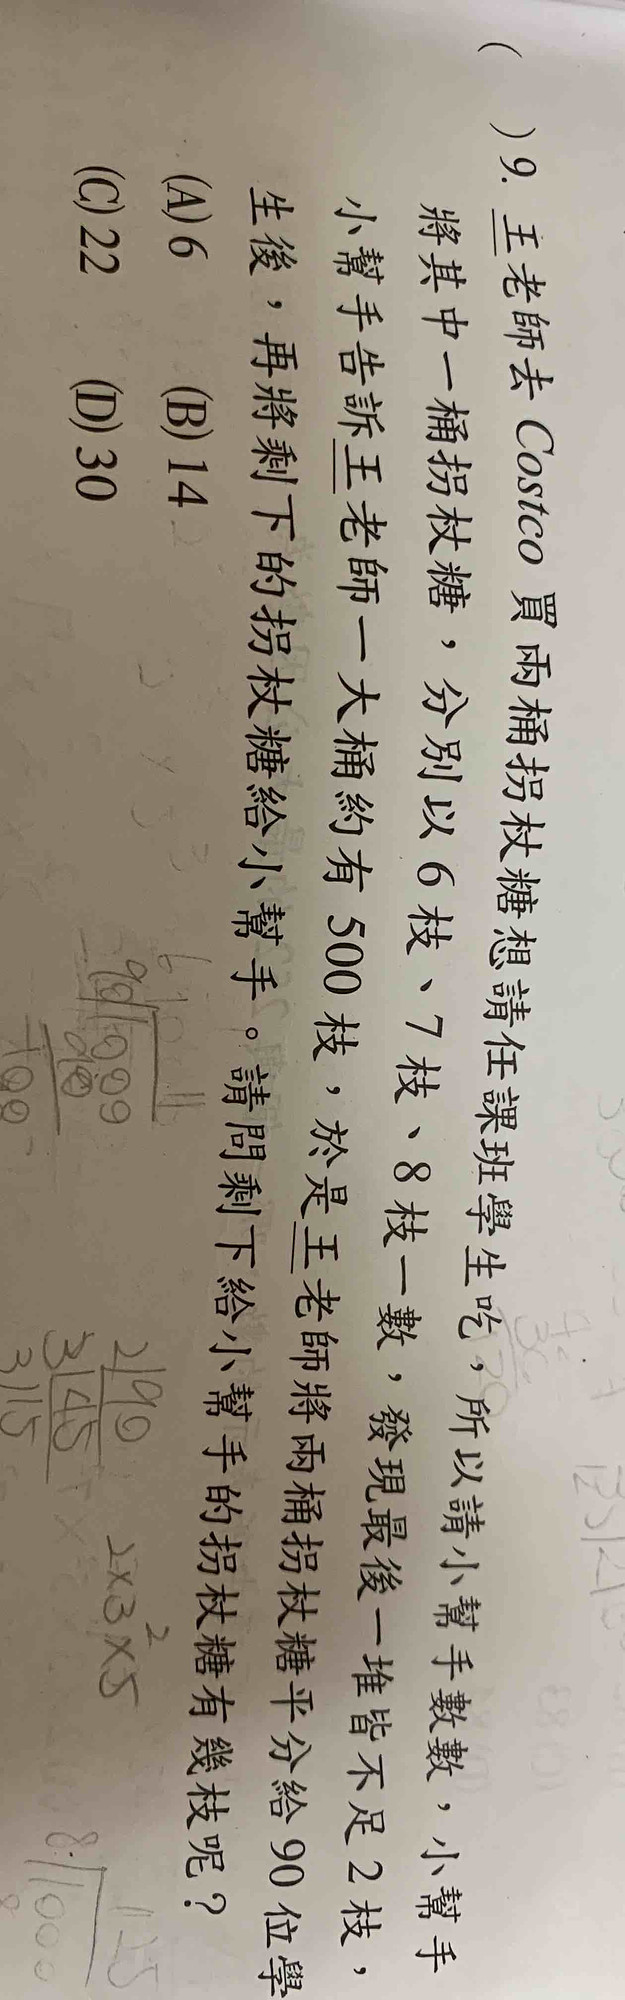 (　　) 9. 王老師去 Costco 買兩桶拐杖糖想請任課班學生吃，所以請小幫手數數，小幫手
將其中一桶拐杖糖，分別以 6 枝、7 枝、8 枝一數，發現最後一堆皆不足 2 枝，
小幫手告訴王老師一大桶約有 500 枝，於是王老師將兩桶拐杖糖平分給 90 位學
生後，再將剩下的拐杖糖給小幫手。請問剩下給小幫手的拐杖糖有幾枝呢？
(A) 6　(B) 14
(C) 22　(D) 30
2 90
3 45
3 15
2×3²×5